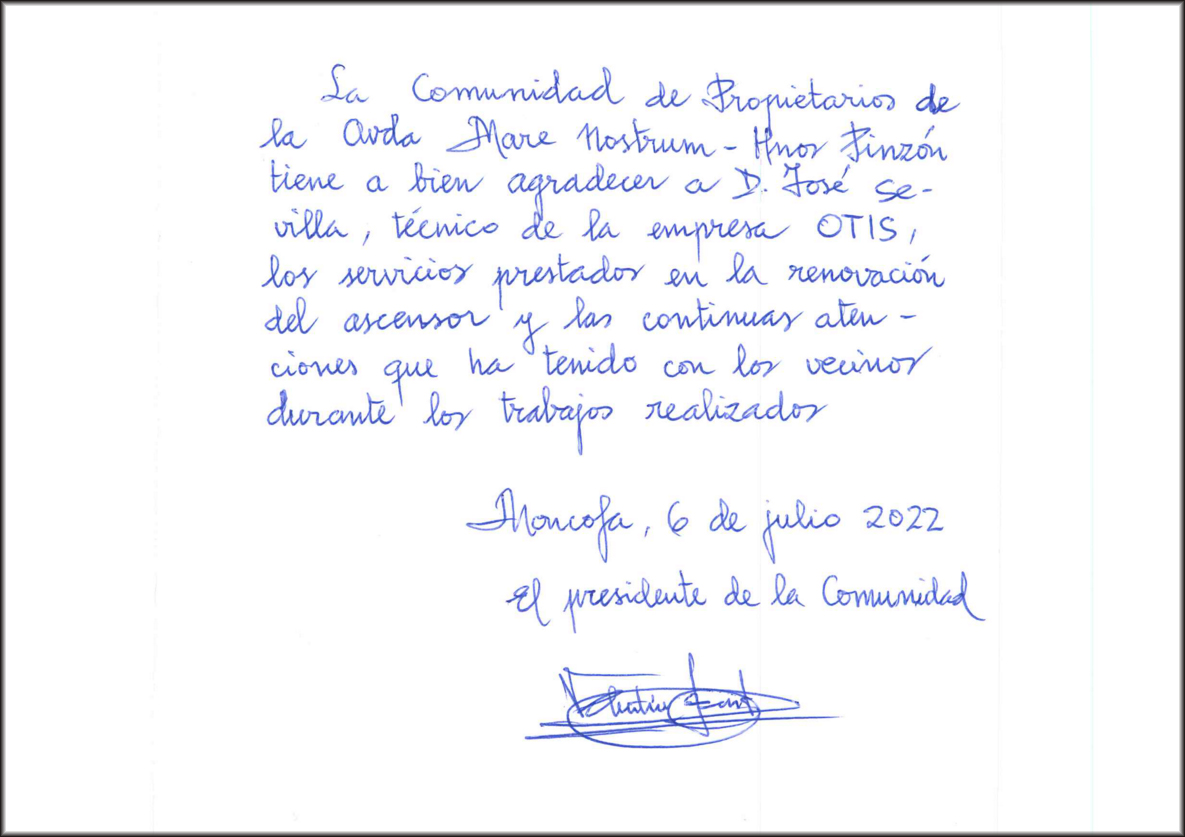 La Comunidad de Propietarios de
la Avda Mare Nostrum - Hnos Pinzón
tiene a bien agradecer a D. José Se-
villa, técnico de la empresa OTIS,
los servicios prestados en la renovación
del ascensor y las continuas aten-
ciones que ha tenido con los vecinos
durante los trabajos realizados
Moncofa, 6 de julio 2022
El presidente de la Comunidad